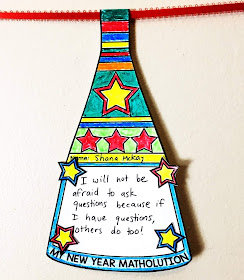 Name: Shana McKay
I will not be
afraid to ask
questions because if
I have questions,
others do too!
MY NEW YEAR MATHOLUTION